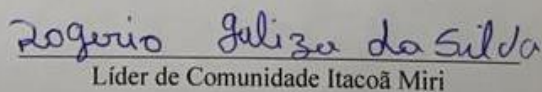 Rogerio Galiza da Silva
Líder de Comunidade Itacoã Miri